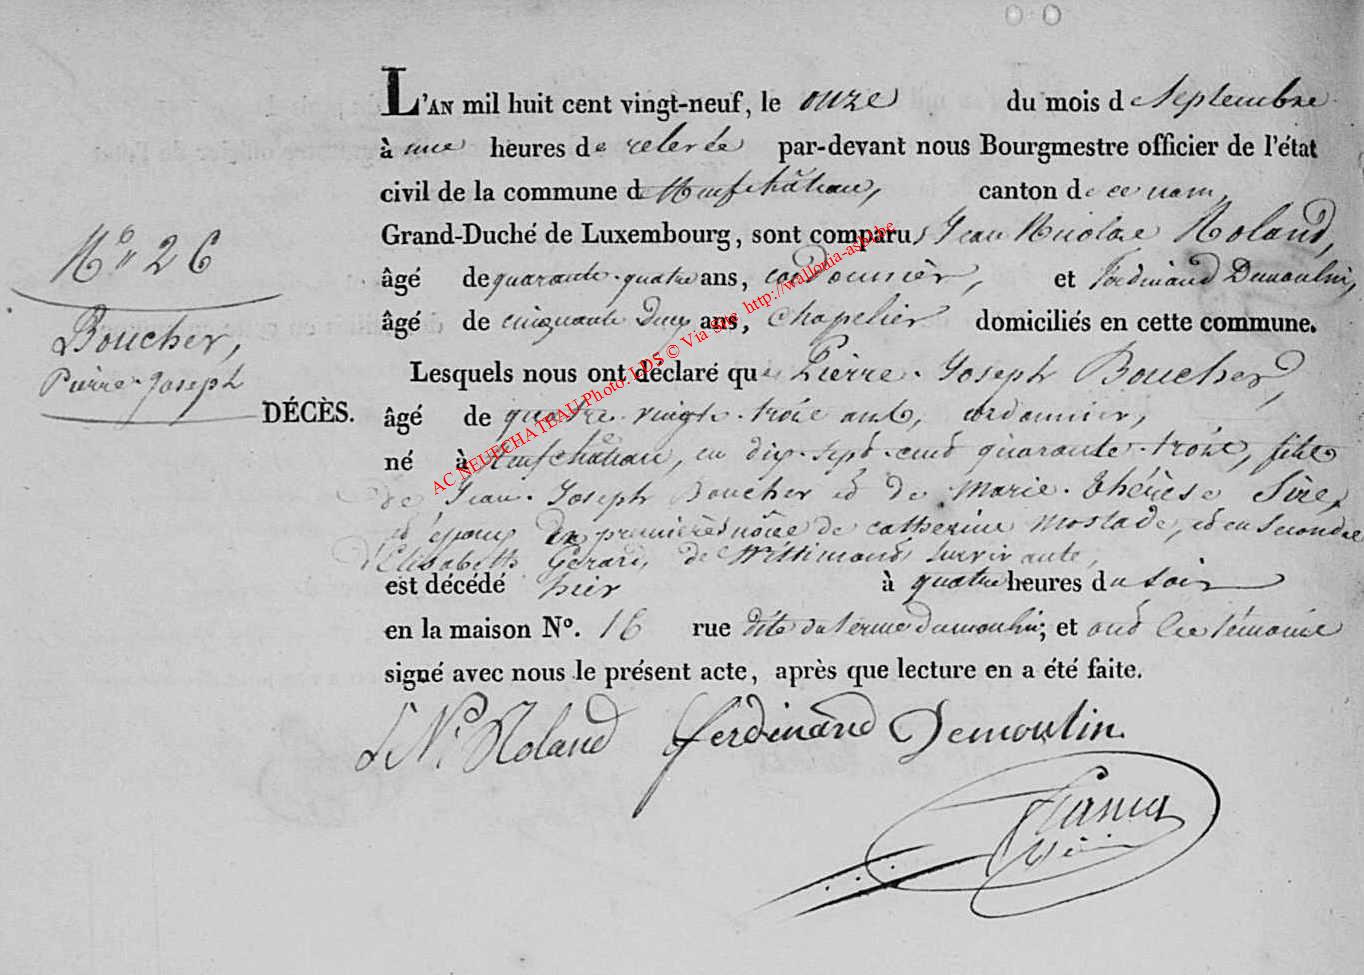 L'AN mil huit cent vingt-neuf, le onze du mois de Septembre
à une heures de relevée par-devant nous Bourgmestre officier de l'état
civil de la commune de Neufchâteau, canton de ce nom,
Grand-Duché de Luxembourg, sont comparus Jean Nicolas Roland,
âgé de quarante-quatre ans, cordonnier, et Ferdinand Dumoulin,
âgé de cinquante deux ans, chapelier domiciliés en cette commune.
Lesquels nous ont déclaré que Pierre-Joseph Boucher,
N° 26
Boucher,
Pierre-Joseph
DÉCÈS.
âgé de quatre-vingt-trois ans, cordonnier,
né à Neufchâteau, en dix-sept-cent quarante-trois, fils
de Jean-Joseph Boucher et de Marie-Thérèse Sire,
et époux en premières nôces de Catherine Mostade, et en secondes
d'Elisabeth Gérard, de Wittimont survivante,
est décédé hier à quatre heures du soir
en la maison N°. 16 rue dite du terme dumoulin; et ont les témoins
signé avec nous le présent acte, après que lecture en a été faite.
J Ns Roland Ferdinand Demoulin.
AC NEUFCHATEAU Photo: LDS © Via Site http://wallonia-asbl.be